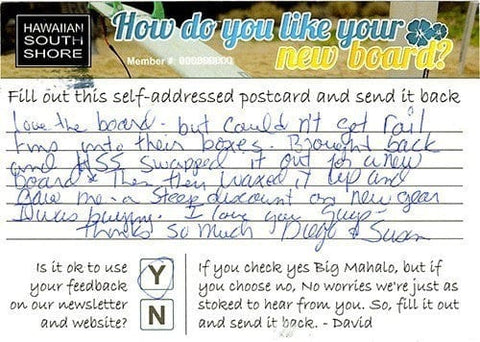 HAWAIIAN
SOUTH
SHORE
How do you like your
new board?
Member #
Fill out this self-addressed postcard and send it back
love the board - but couldn't get rail
fins into their boxes. Brought back
and HSS swapped it out for a new
board & then they waxed it up and
gave me a steep discount on new gear
I was buying. I love you guys -
thanks so much Diego & Susan
Is it ok to use
your feedback
on our newsletter
and website?
Y
N
If you check yes Big Mahalo, but if
you choose no, No worries we're just as
stoked to hear from you. So, fill it out
and send it back. - David